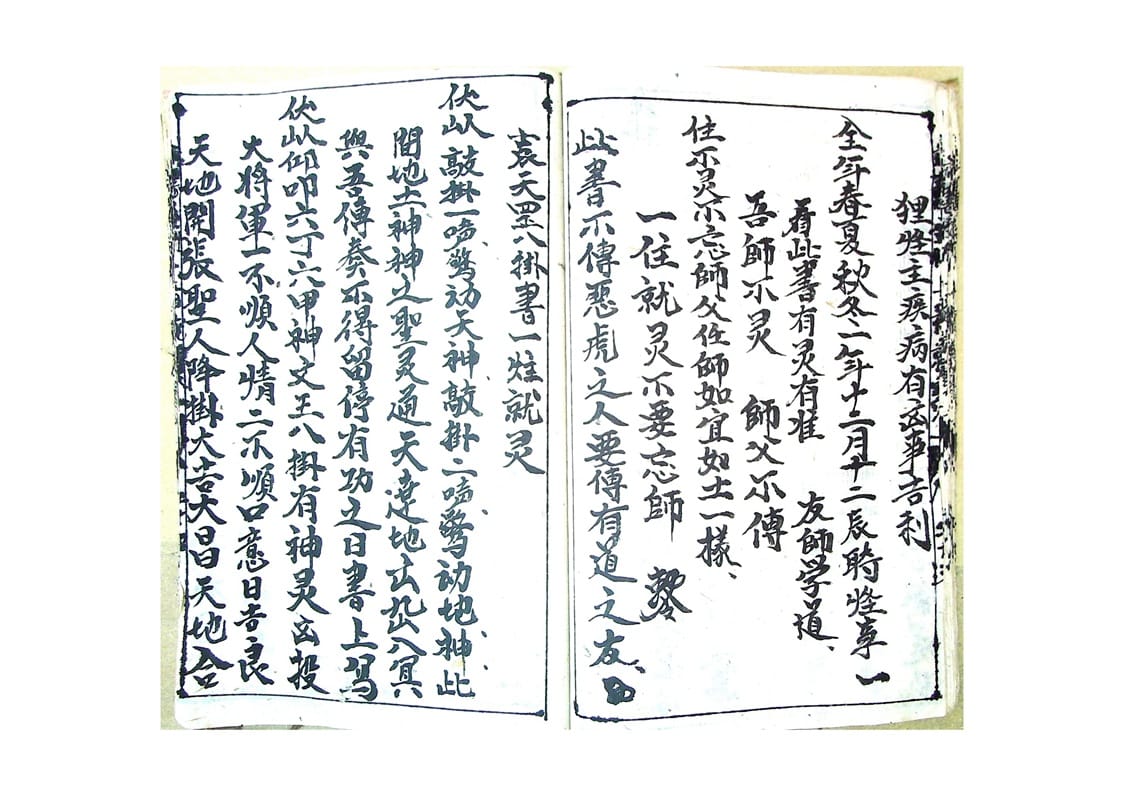 狸怪主疾病有凶事吉利
全年春夏秋冬一年十二月十二辰時怪事一
看此書有灵有准 友師学道
吾師不灵 師父不傳
住不灵不忘師父任師如宜如土一樣
一住就灵不要忘師
此書不傳惡虎之人要傳有道之友
袁天罡八掛書一炷就灵
伏以 敲掛一啼驚动天神敲掛二啼驚动地神此
間地土神神之聖灵通天達地出幽入冥
與吾傳奏不得留停有功之日書上寫
伏以仰叩六丁六甲神文王八掛有神灵凶投
大将軍一不順人情二不順口意日吉良
天地開張聖人降掛大吉大昌天地合